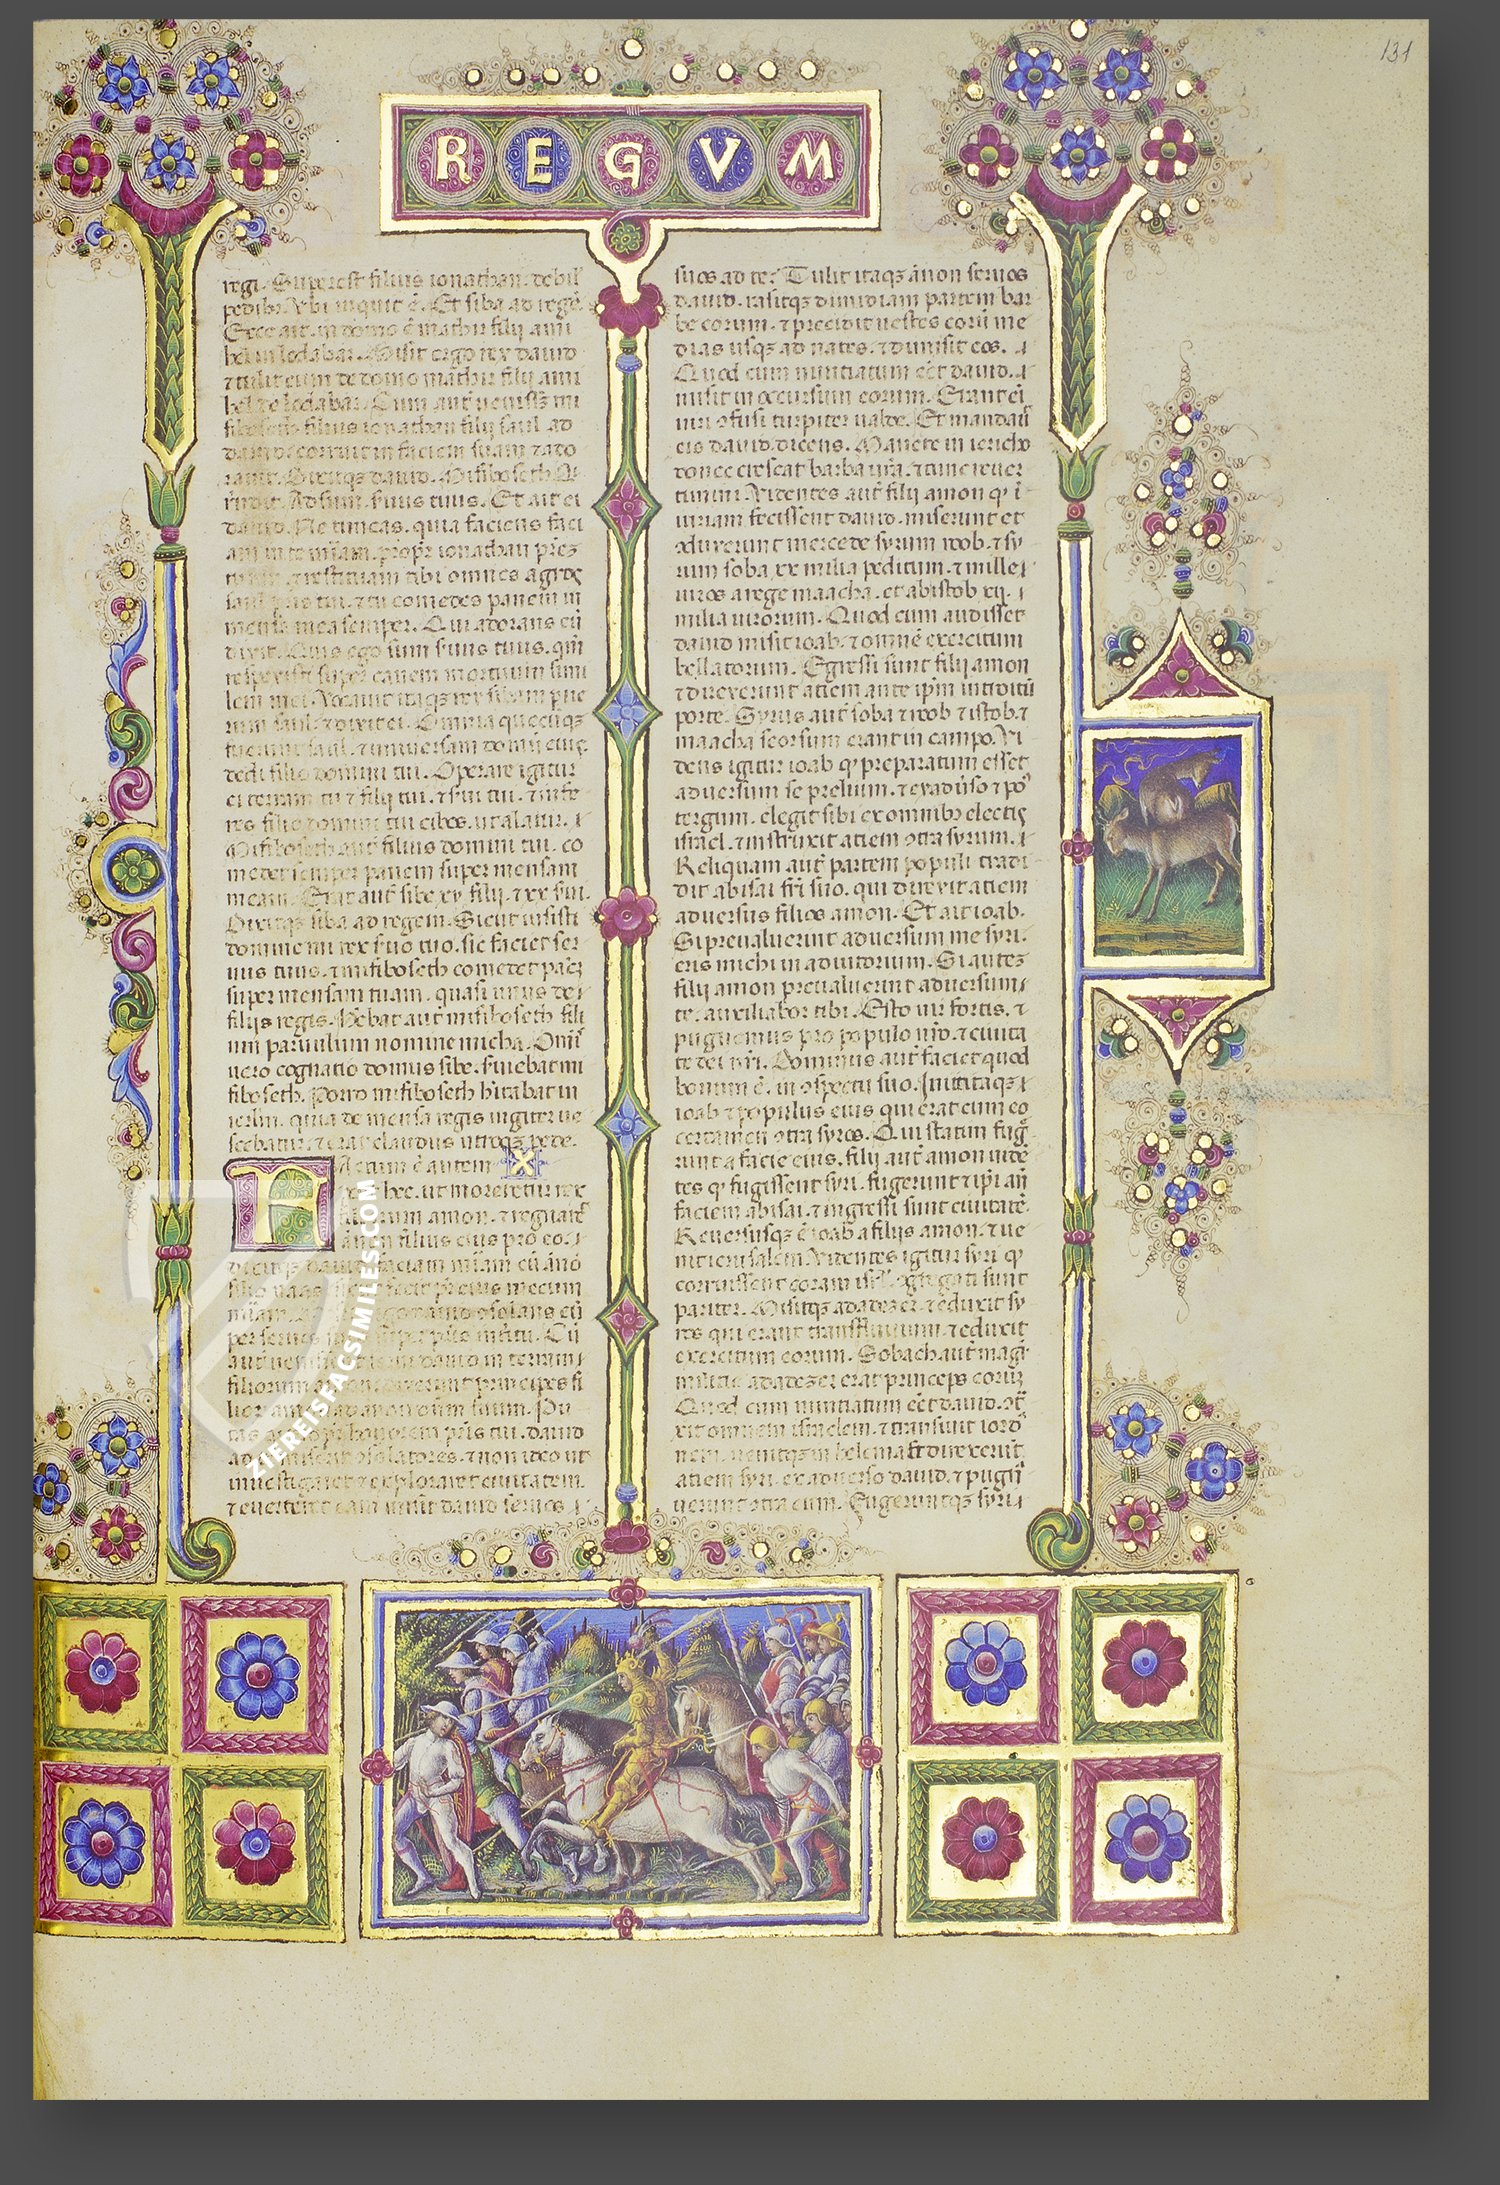 131
REGVM
regi. Superest filius ionathan. debil
pedibꝫ. Vbi inquit ē. Et siba ad regē.
Ecce ait. in domo ē machir filij ami
hel in lodabar. Misit ergo rex dauid
⁊ tulit eum de domo machir filij ami
hel de lodabar. Cum aut̄ uenissꝫ mi
fiboseth filius ionathan filij saul ad
dauid corruit in faciem suam ⁊ ado
rauit. Dixitqꝫ dauid. Mifiboseth. Q
r̄ndit. Adsum seruus tuus. Et ait ei
dauid. Ne timeas. quia faciens faci
am in te mīam. propt̄ ionathan prēꝫ
tuum. ⁊ restituam tibi omnes agros
saul pris tui. ⁊ tu comedes panem in
mensa mea semper. Qui adorans eū
dixit. Quis ego sum seruus tuus. qm̄
respexisti super canem mortuum simi
lem mei. Vocauit itaqꝫ rex sibam pue
rum saul. ⁊ dixit ei. Omnia quecūqꝫ
fuerunt saul. ⁊ uniuersam domū eius
dedi filio domini tui. Operare igitur
ei terram tu ⁊ filij tui. ⁊ serui tui. ⁊ infe
res filio domini tui cibos. ut alatur.
Mifiboseth aut̄ filius domini tui. co
medet semper panem super mensam
meam. Erant aut̄ sibe xv filij. ⁊ xx serui.
Dixitqꝫ siba ad regem. Sicut iussisti
domine mi rex seruo tuo. sic faciet ser
uus tuus. ⁊ mifiboseth comedet pacꝫ
super mensam tuam. quasi unus de
filijs regis. Hebat aut̄ mifiboseth fili
um paruulum nomine micha. Omīs
uero cognatio domus sibe. seruiebat mi
fiboseth. Porro mifiboseth hītabat in
ierlm. quia de mensa regis iugiter ue
scebatur. ⁊ erat claudus utroqꝫ pede.
Factum ē autem X
post hec. ut moreretur rex
filiorum amon. ⁊ regnaret
anon filius eius pro eo.
Dixitqꝫ dauid. faciam mīam cū anō
filio naas. sicut fecit pr̄ eius mecum
mīam. Misit ergo dauid ꝯsolans eū
per seruos suos super pris interitu. Cū
aut̄ uenissent serui dauid in terram
filiorum amon. dixerunt principes fi
liorum amon ad anon dn̄m suum. Pu
tas qꝫ propt̄ honorem pris tui. dauid
ad te miserit ꝯsolatores. ⁊ non ideo ut
inuestigaret ⁊ exploraret ciuitatem.
⁊ euerteret eam misit dauid seruos
suos ad te? Tulit itaqꝫ anon seruos
dauid. rasitqꝫ dimidiam partem bar
be eorum. ⁊ precidit uestes eorū me
dias usqꝫ ad nates. ⁊ dimisit eos.
Quod cum nuntiatum eēt dauid.
misit in occursum eorum. Erant eī
uiri ꝯfusi turpiter ualde. Et mandauit
eis dauid dicens. Manete in iericho
donec crescat barba ur̄a. ⁊ tunc reuer
timini. Videntes aut̄ filij amon qꝫ ī
iuriam fecissent dauid. miserunt et
ꝯduxerunt mercede syrum roob. ⁊ sy
rum soba. xx milia peditum. ⁊ mille
uiros a rege maacha. et ab istob xij.
milia uirorum. Quod cum audisset
dauid misit ioab. ⁊ omnē exercitum
bellatorum. Egressi sunt filij amon
⁊ direxerunt aciem ante ip̄m introitū
porte. Syrus aut̄ soba ⁊ roob ⁊ istob ⁊
maacha seorsum erant in campo. Vi
dens igitur ioab qꝫ preparatum esset
aduersum se prelium. ⁊ ex aduerso ⁊ pꝯ
tergum. elegit sibi ex omnibꝫ electis
israel. ⁊ instruxit aciem ꝯtra syrum.
Reliquam aut̄ partem populi tradi
dit abisai fr̄i suo. qui direxit aciem
aduersus filios amon. Et ait ioab.
Si preualuerint aduersum me syri.
eris michi in adiutorium. Si autem
filij amon preualuerint aduersum
te. auxiliabor tibi. Esto uir fortis. ⁊
pugnemus pro populo nr̄o. ⁊ ciuita
te dei nr̄i. Dominus aut̄ faciet quod
bonum ē. in ꝯspectu suo. Iniit itaqꝫ
ioab ⁊ populus eius qui erat cum eo
certamen ꝯtra syros. Qui statim fuḡ
runt a facie eius. filij aut̄ amon uidē
tes qꝫ fugissent syri. fugerunt ⁊ ip̄i an̄
faciem abisai. ⁊ ingressi sunt ciuitatē.
Reuersusqꝫ ē ioab a filijs amon. ⁊ ue
nit ierusalem. Videntes igitur syri qꝫ
corruissent coram isrl̄. ꝯgregati sunt
pariter. Misitqꝫ adadezer. ⁊ eduxit sy
ros qui erant trans fluuium. ⁊ eduxit
exercitum eorum. Sobach aut̄ magr̄
militie adadezer erat princeps eorum.
Quod cum nuntiatum eēt dauid. ꝯt
xit omnem israelem. ⁊ transiuit iordā
nem. uenitqꝫ in helema. Et direxerūt
aciem syri. ex aduerso dauid. ⁊ pugn̄
uerunt ꝯtra eum. Fugeruntqꝫ syri
ZIEREISFACSIMILES.COM